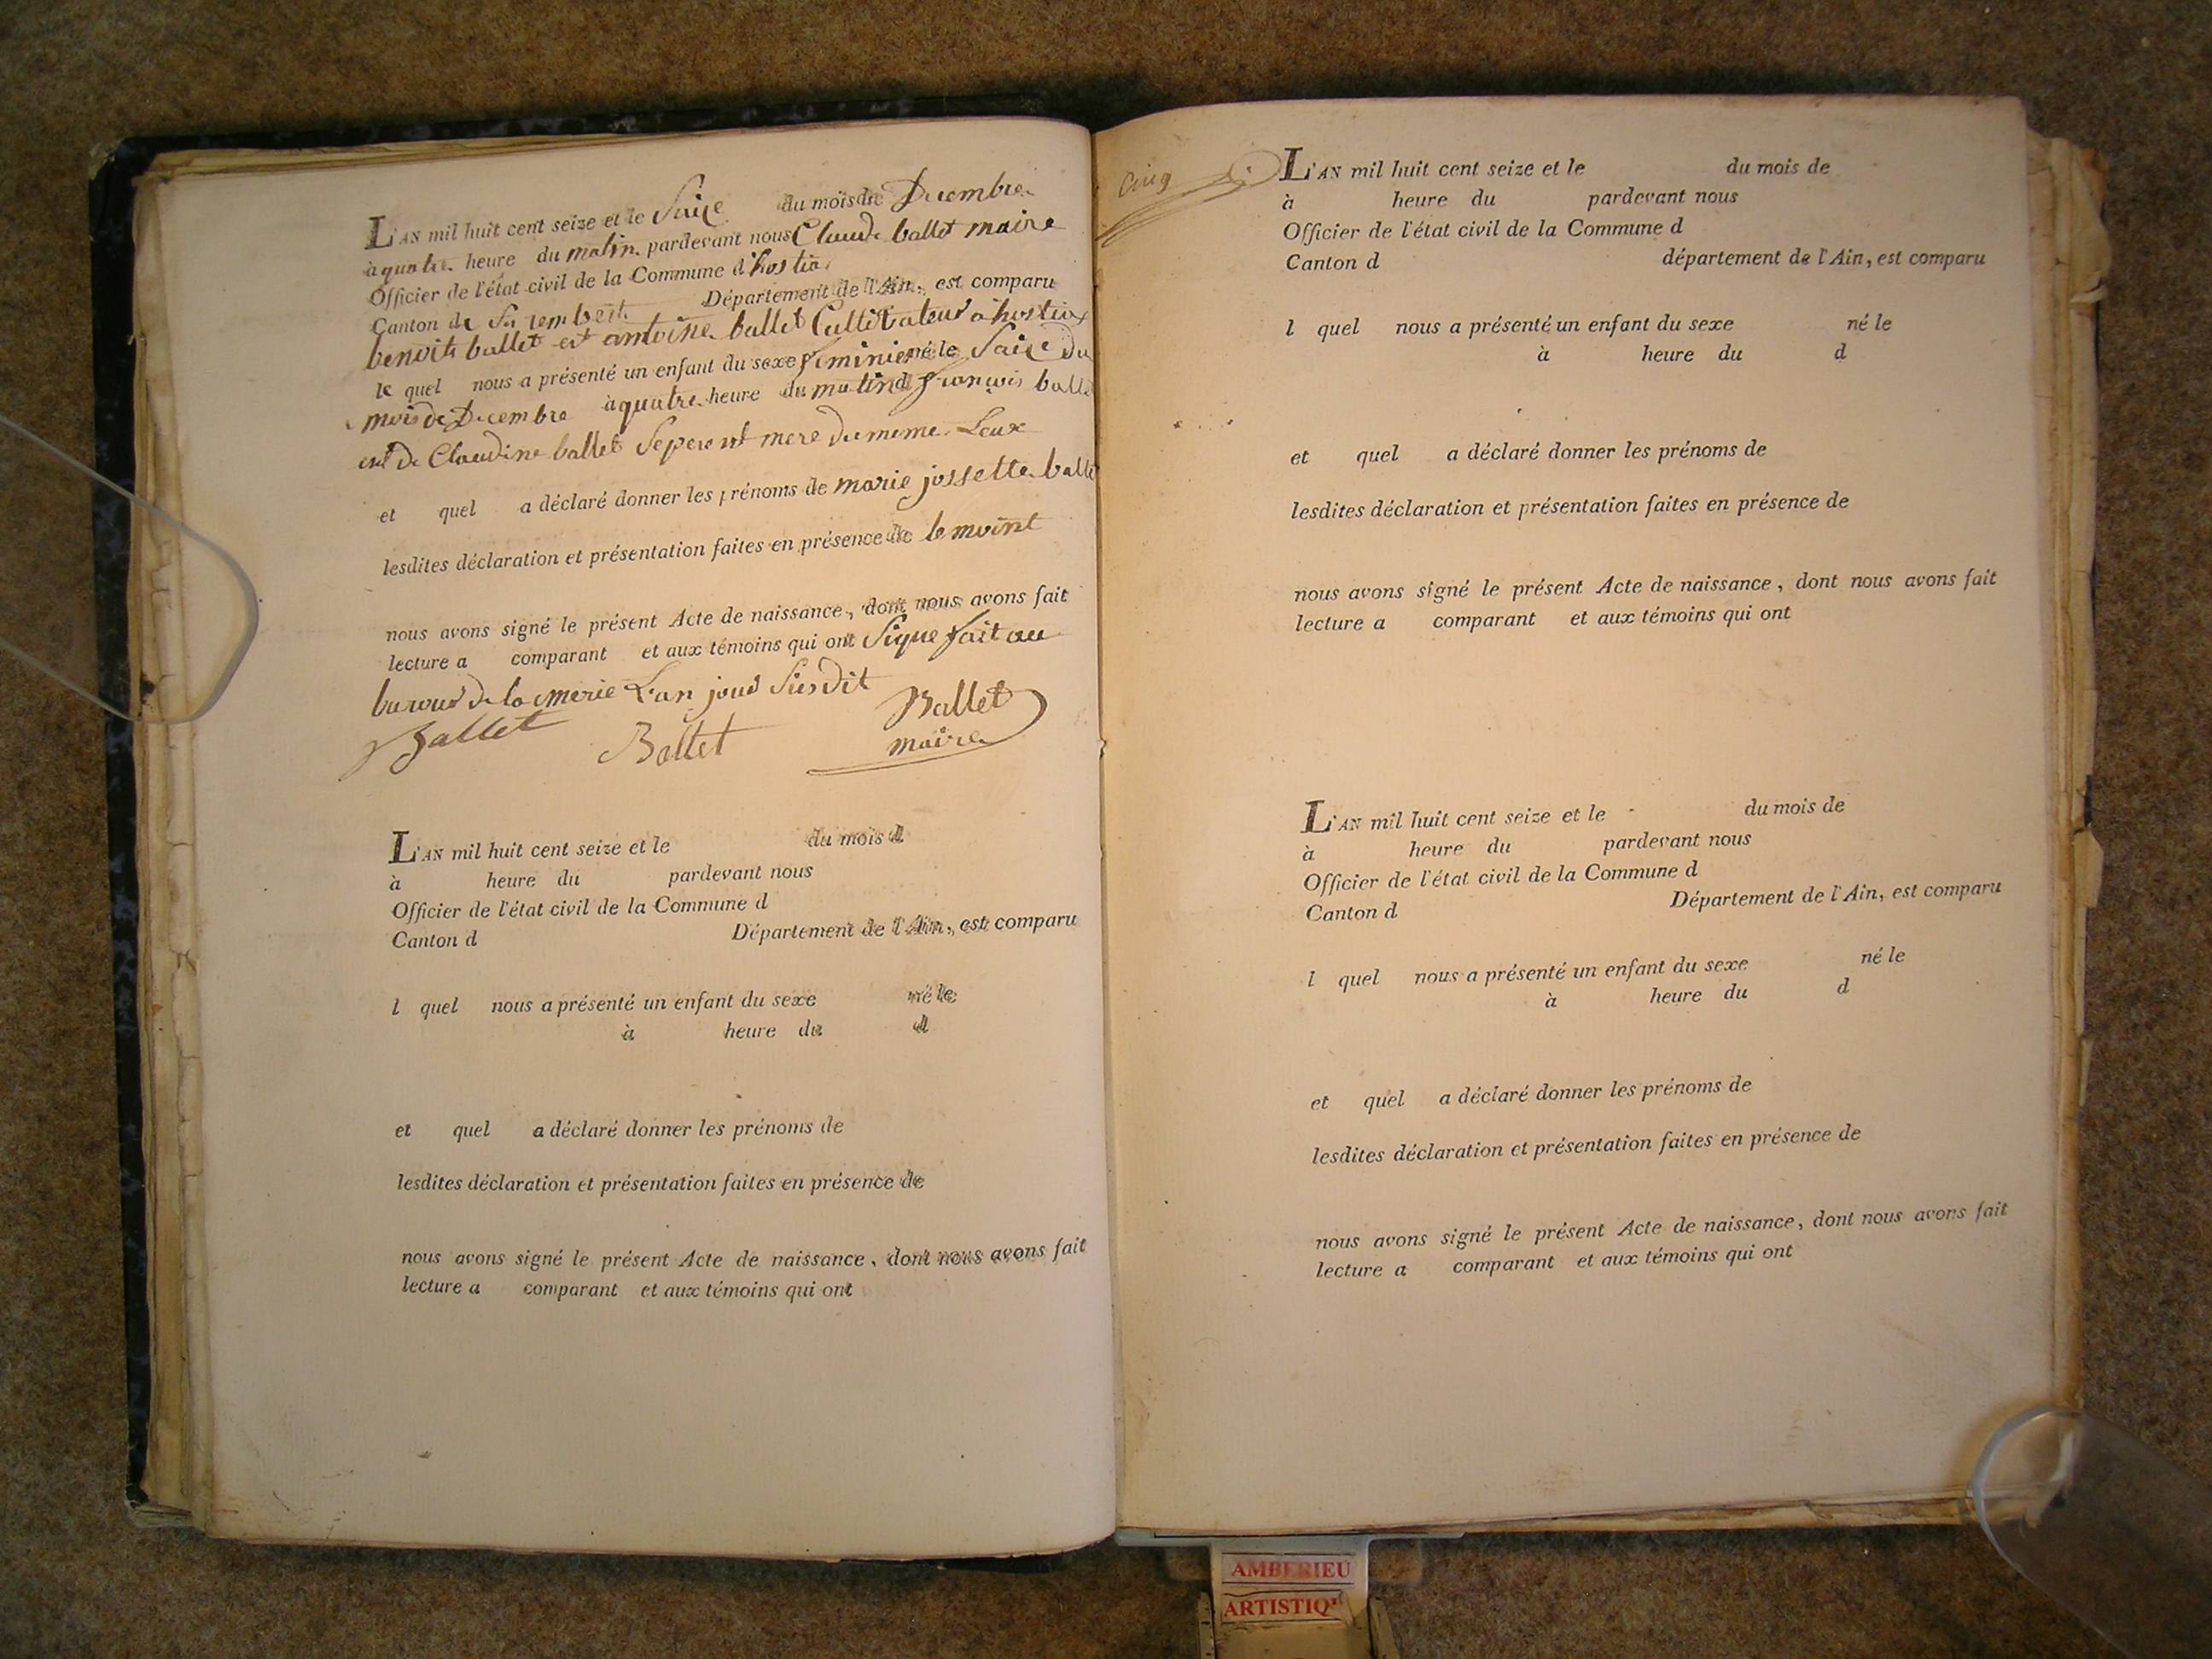 L'AN mil huit cent seize et le Saize du mois de Decembre
à quatre heure du matin pardevant nous Claude ballet maire
Officier de l'état civil de la Commune d'hostia
Canton de Département de l'Ain, est comparu
benoit ballet et antoine ballet Cultivateur a hostiax
le quel nous a présenté un enfant du sexe feminien né le Saize Du
mois de Decembre à quatre heure du matin d françois ballet
et de Claudine ballet Se mere du meme Leux
et quel a déclaré donner les prénoms de marie jossette ballet
lesdites déclaration et présentation faites en présence de
nous avons signé le présent Acte de naissance, dont nous avons fait
lecture a comparant et aux témoins qui ont Signe fait au
de la merie L'an jour Susdit
Ballet Ballet Ballet
maire
L'AN mil huit cent seize et le du mois d
à heure du pardevant nous
Officier de l'état civil de la Commune d
Canton d Département de l'Ain, est comparu
l quel nous a présenté un enfant du sexe né le
à heure du d
et quel a déclaré donner les prénoms de
lesdites déclaration et présentation faites en présence de
nous avons signé le présent Acte de naissance, dont nous avons fait
lecture a comparant et aux témoins qui ont
cinq
L'AN mil huit cent seize et le du mois de
à heure du pardevant nous
Officier de l'état civil de la Commune d
Canton d département de l'Ain, est comparu
l quel nous a présenté un enfant du sexe né le
à heure du d
et quel a déclaré donner les prénoms de
lesdites déclaration et présentation faites en présence de
nous avons signé le présent Acte de naissance, dont nous avons fait
lecture a comparant et aux témoins qui ont
L'AN mil huit cent seize et le du mois de
à heure du pardevant nous
Officier de l'état civil de la Commune d
Canton d Département de l'Ain, est comparu
l quel nous a présenté un enfant du sexe né le
à heure du d
et quel a déclaré donner les prénoms de
lesdites déclaration et présentation faites en présence de
nous avons signé le présent Acte de naissance, dont nous avons fait
lecture a comparant et aux témoins qui ont
AMBERIEU
ARTISTIQ